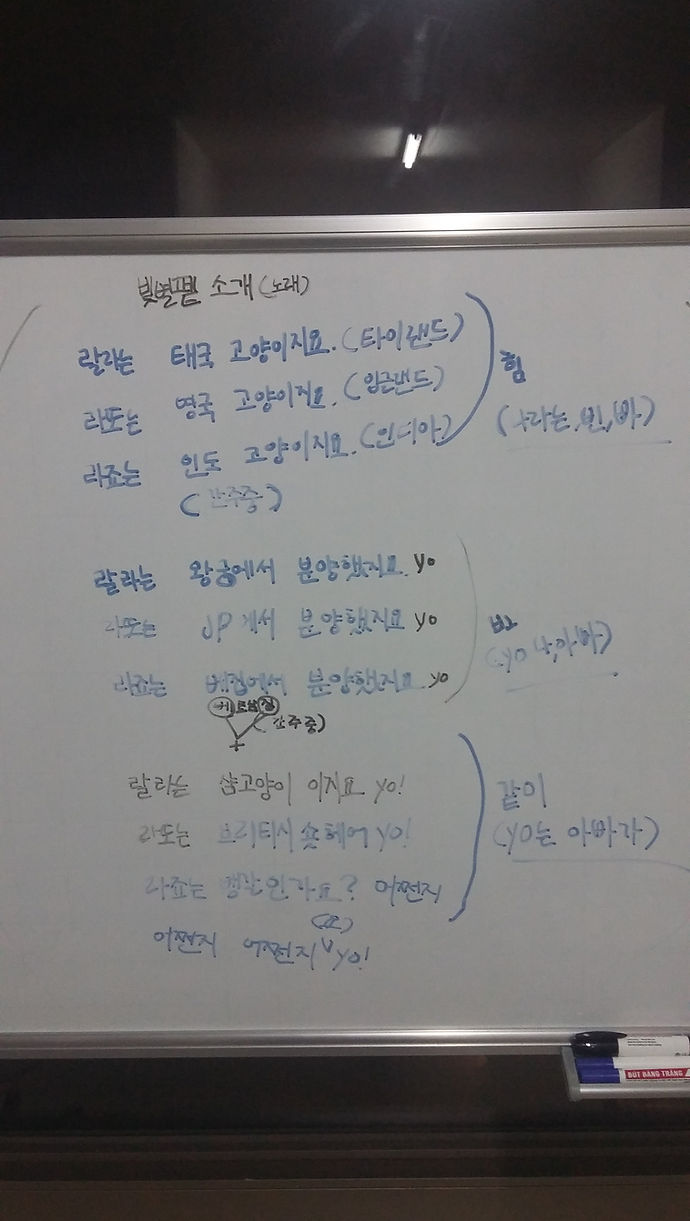 소개 (노래)
랄라는 태국 고양이지요. (타이랜드)
라또는 영국 고양이지요. (잉글랜드)
라죠는 인도 고양이지요. (인디아)
힘
(나라는, 빈, 바)
(간주중)
랄라는 왕궁에서 분양했지요 yo
라또는 JP에서 분양했지요 yo
라죠는 분양했지요 yo
(yo 나, 아빠)
(간주중)
랄라는 샴고양이 이지요 yo!
라또는 브리티시 숏헤어 yo!
라죠는 벵갈인가요? 어쩐지
같이
(yo는 아빠가)
(요)
어쩐지 어쩐지 yo!
BÚT BẢNG TRẮNG